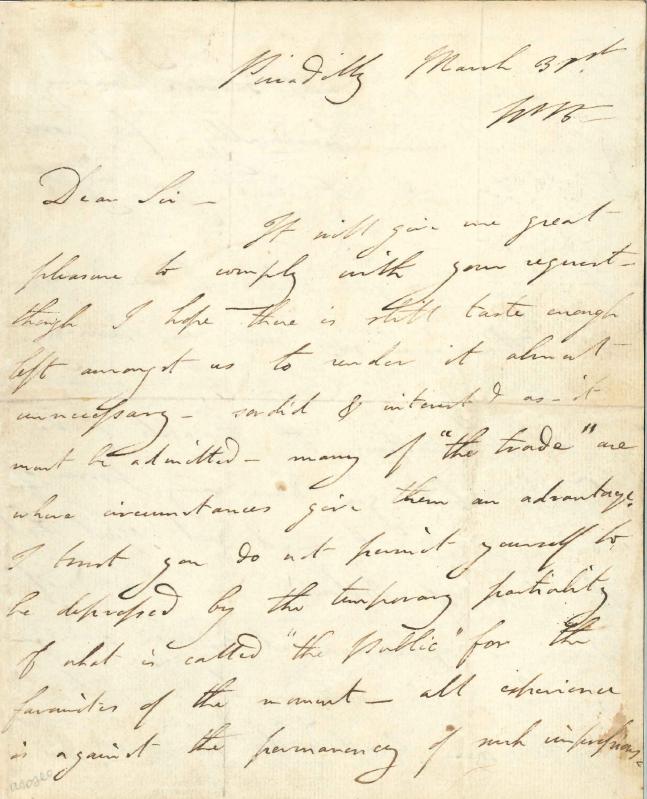 Piccadilly March 31st.
1815 —
Dear Sir —
It will give me great
pleasure to comply with your request —
though I hope there is still taste enough
left amongst us to render it almost
unnecessary — sordid & interested as — it
must be admitted — many of "the trade" are
where circumstances give them an advantage.
I trust you do not permit yourself to
be depressed by the temporary partiality
of what is called "the public" for the
favourites of the moment — all experience
is against the permanency of such impressions —